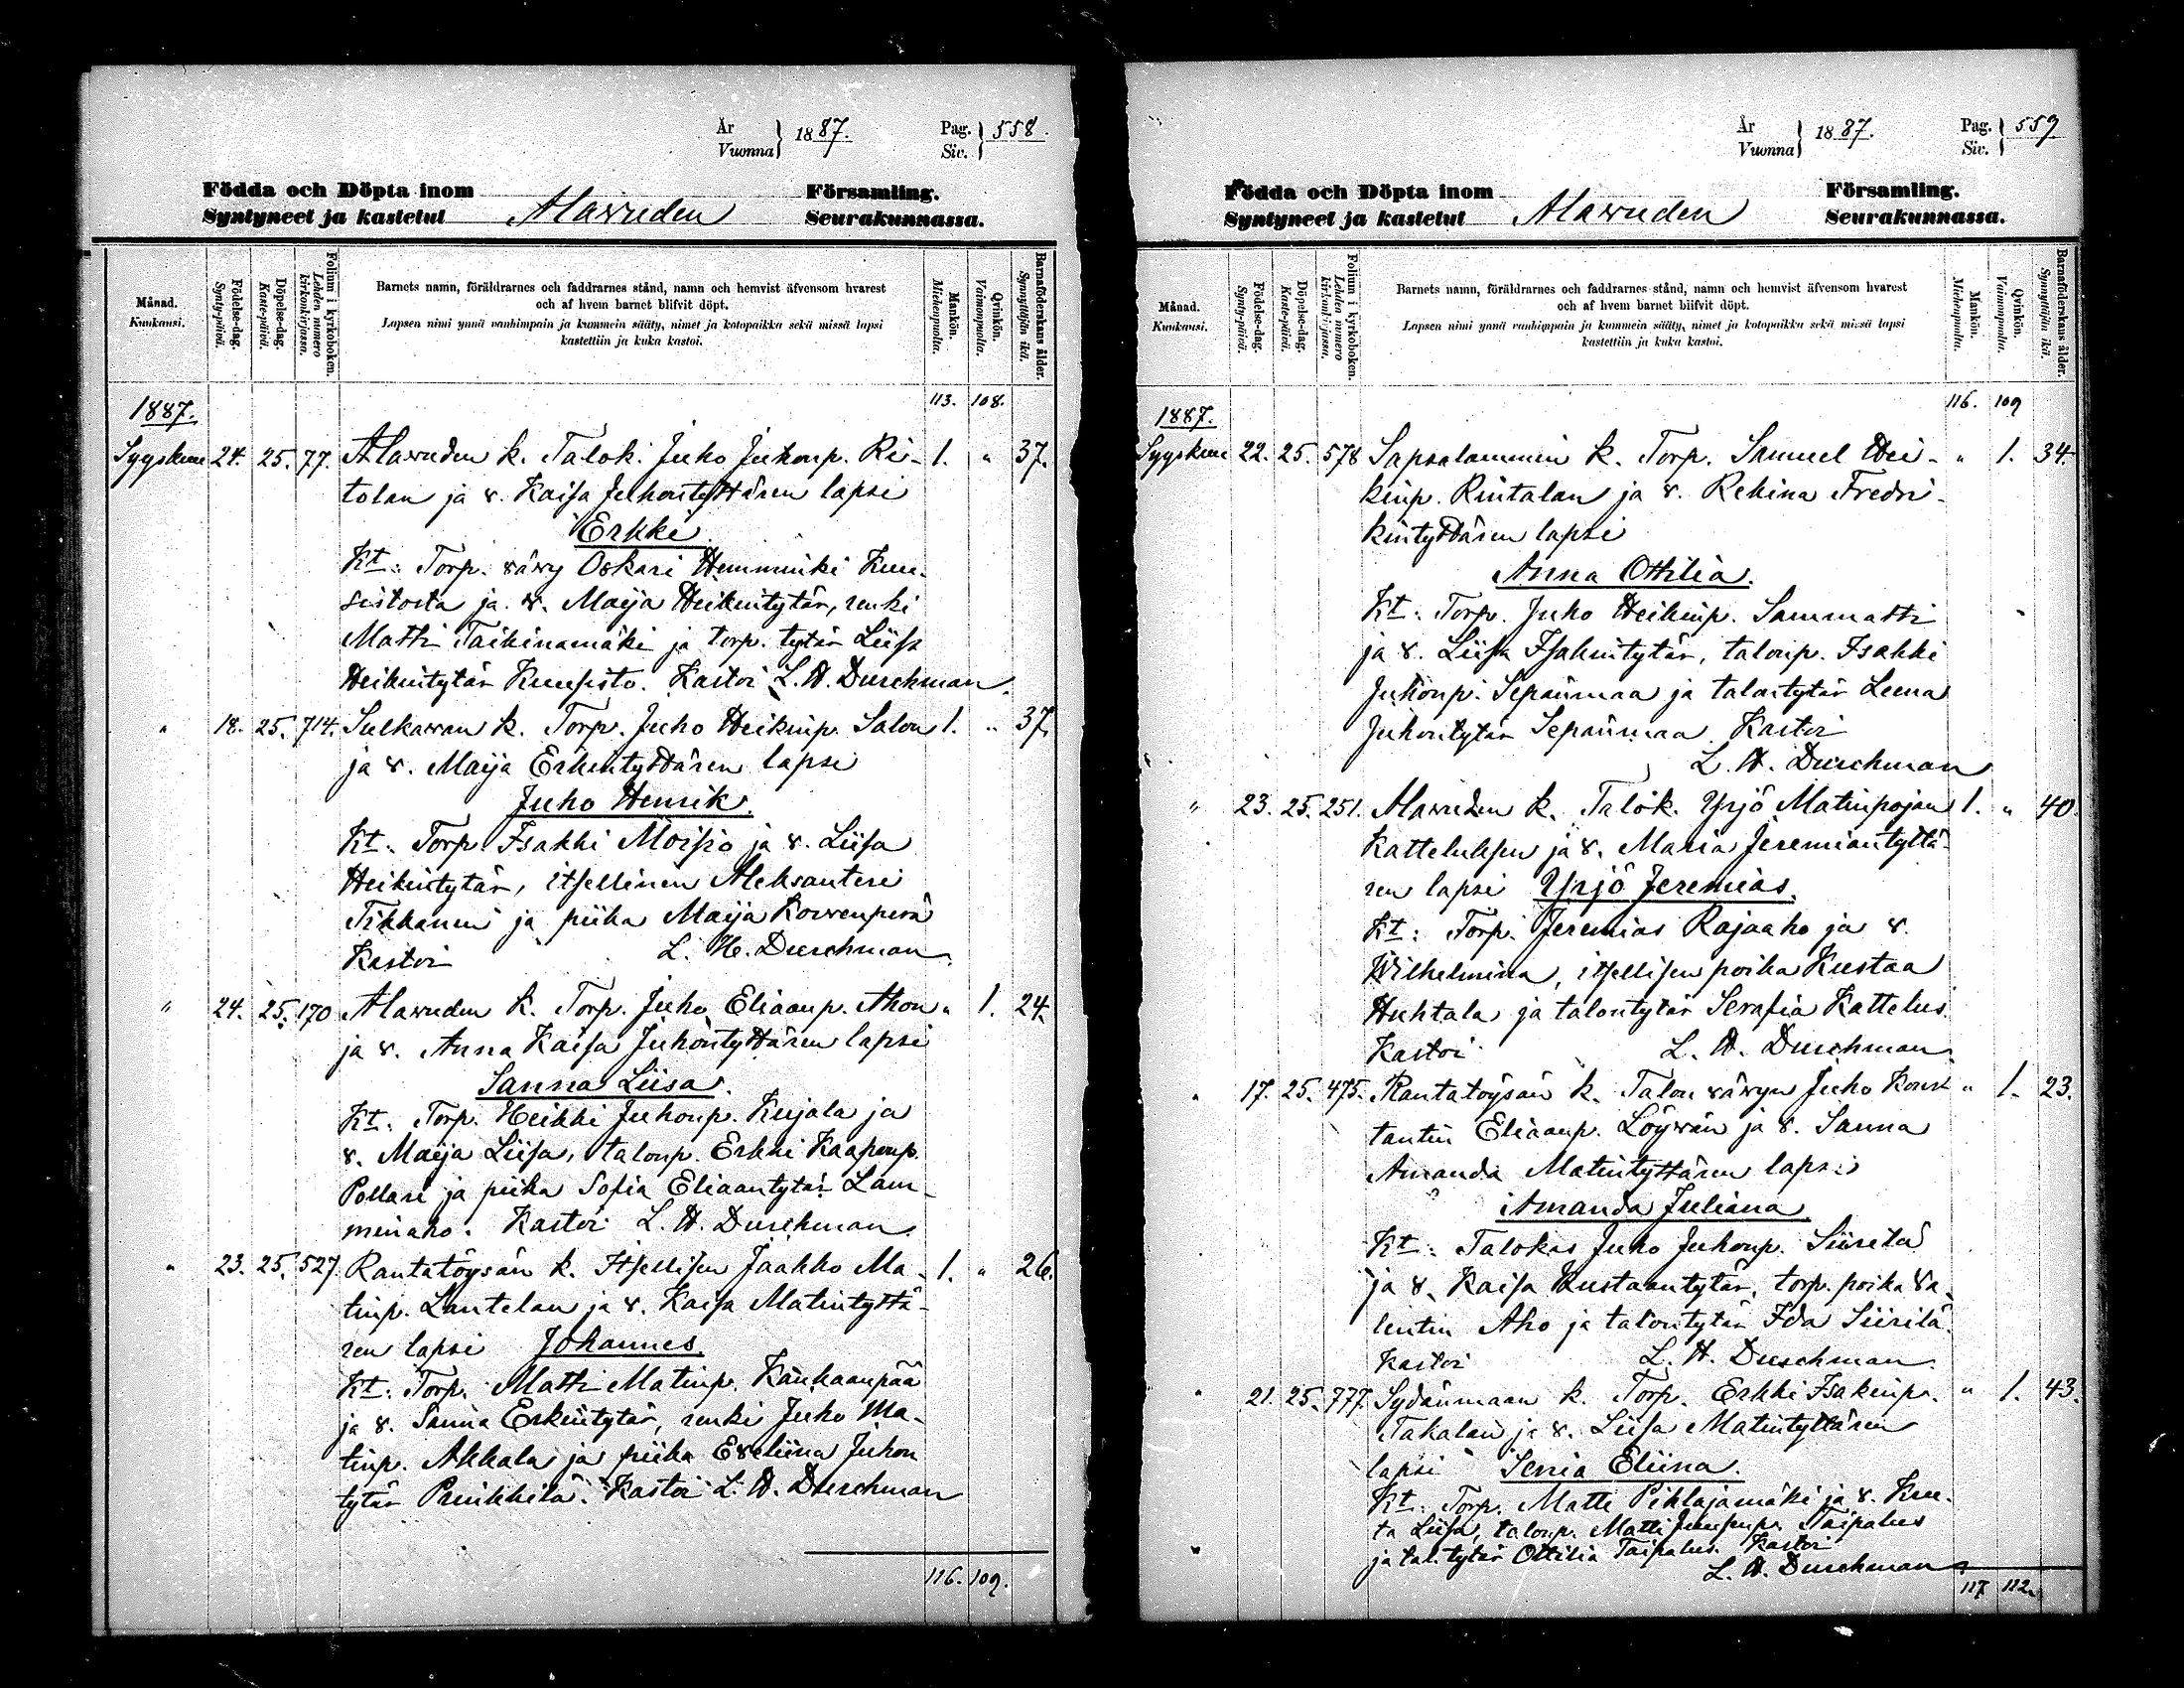 År
Vuonna } 1887.
Pag.
Siv. } 558.
Födda och Döpta inom
Syntyneet ja kastetut
Alawuden
Församling.
Seurakunnassa.
Månad.
Kuukausi.
Födelse-dag.
Synty-päivä.
Döpelse-dag.
Kaste-päivä.
Folium i kyrkoboken.
Lehden numero kirkonkirjassa.
Barnets namn, föräldrarnes och faddrarnes stånd, namn och hemvist äfvensom hvarest
och af hvem barnet blifvit döpt.
Lapsen nimi ynnä vanhimpain ja kummein sääty, nimet ja kotopaikka sekä missä lapsi
kastettiin ja kuka kastoi.
Mankön.
Miehenpuolta.
Qvinkön.
Vaimonpuolta.
Barnaföderskans ålder.
Synnyttäjän ikä.
1887. 113. 108.
Syyskuu 24. 25. 77. Alawuden k. Talok. Juho Juhonp. Ri- 1. " 37.
tolan ja v. Kaisa Juhontyttären lapsi
Erkki.
Kt: Torp. vävy Oskari Hemminki Kuu-
sistosta ja v. Maija Heikintytär, renki
Matti Taikinamäki ja torp. tytär Liisa
Heikintytär Kuusisto. Kastoi L. H. Durchman.
" 18. 25. 714. Sulkawan k. Torp. Juho Heikinp. Salon 1. " 37.
ja v. Maija Erkintyttären lapsi
Juho Henrik.
Kt. Torp. Isakki Moisio ja v. Liisa
Heikintytär, itsellinen Aleksanteri
Tikkanen ja piika Maija Korvenperä
Kastoi L. H. Durchman.
" 24. 25. 170 Alawuden k. Torp. Juho Eliaanp. Ahon " 1. 24.
ja v. Anna Kaisa Juhontyttären lapsi
Sanna Liisa.
Kt. Torp. Heikki Juhonp. Kujala ja
v. Maija Liisa, talonp. Erkki Kaaponp.
Pollari ja piika Sofia Eliaantytär Lam-
minaho. Kastoi L. H. Durchman.
" 23. 25. 527. Rantatöysän k. Itsellisen Jaakko Ma- 1. " 26.
tinp. Lantelan ja v. Kaisa Matintyttä-
ren lapsi Johannes.
Kt: Torp. Matti Matinp. Kankaanpää
ja v. Sanna Erkintytär, renki Juho Ma-
tinp. Akkala ja piika Eveliina Juhon
tytär Prinkkilä. Kastoi L. H. Durchman
116. 109.
År
Vuonna } 1887.
Pag.
Siv. } 559
Födda och Döpta inom
Syntyneet ja kastetut
Alawuden
Församling.
Seurakunnassa.
Månad.
Kuukausi.
Födelse-dag.
Synty-päivä.
Döpelse-dag.
Kaste-päivä.
Folium i kyrkoboken.
Lehden numero kirkonkirjassa.
Barnets namn, föräldrarnes och faddrarnes stånd, namn och hemvist äfvensom hvarest
och af hvem barnet blifvit döpt.
Lapsen nimi ynnä vanhimpain ja kummein sääty, nimet ja kotopaikka sekä missä lapsi
kastettiin ja kuka kastoi.
Mankön.
Miehenpuolta.
Qvinkön.
Vaimonpuolta.
Barnaföderskans ålder.
Synnyttäjän ikä.
1887. 116. 109
Syyskuu 22. 25. 578 Sapsalammin k. Torp. Samuel Hei- " 1. 34.
kinp. Rintalan ja v. Rekina Fredri-
kintyttären lapsi
Anna Ottilia.
Kt: Torp. Juho Heikinp. Sammatti
ja v. Liisa Isakintytär, talonp. Isakki
Juhonp. Sepänmaa ja talontytär Leena
Juhontytär Sepänmaa. Kastoi
L. H. Durchman
" 23. 25. 251. Alawuden k. Talok. Yrjö Matinpojan 1. " 40.
Katteluksen ja v. Maria Jeremiantyttä-
ren lapsi Yrjö Jeremias.
Kt: Torp. Jeremias Rajaaho ja v.
Wilhelmina, itsellisen poika Kustaa
Huhtala ja talontytär Serafia Kattelus.
Kastoi L. H. Durchman.
" 17. 25. 475. Rantatöysän k. Talon vävyn Juho Kons- " 1. 23.
tantin Eliaanp. Löywän ja v. Sanna
Amanda Matintyttären lapsi
Amanda Juliana.
Kt: Talokas Juho Juhonp. Siirilä
ja v. Kaisa Kustaantytär, torp. poika Va-
lentin Aho ja talontytär Ida Siirilä.
Kastoi L. H. Durchman.
" 21. 25. 777. Sydänmaan k. Torp. Erkki Isakinp. " 1. 43.
Takalan ja v. Liisa Matintyttären
lapsi Senia Eliina.
Kt: Torp. Matti Pihlajamäki ja v. Kree-
ta Liisa, talonp. Matti Juusenp. Taipalus
ja tal. tytär Ottilia Taipalus. Kastoi
L. H. Durchman
117 112.